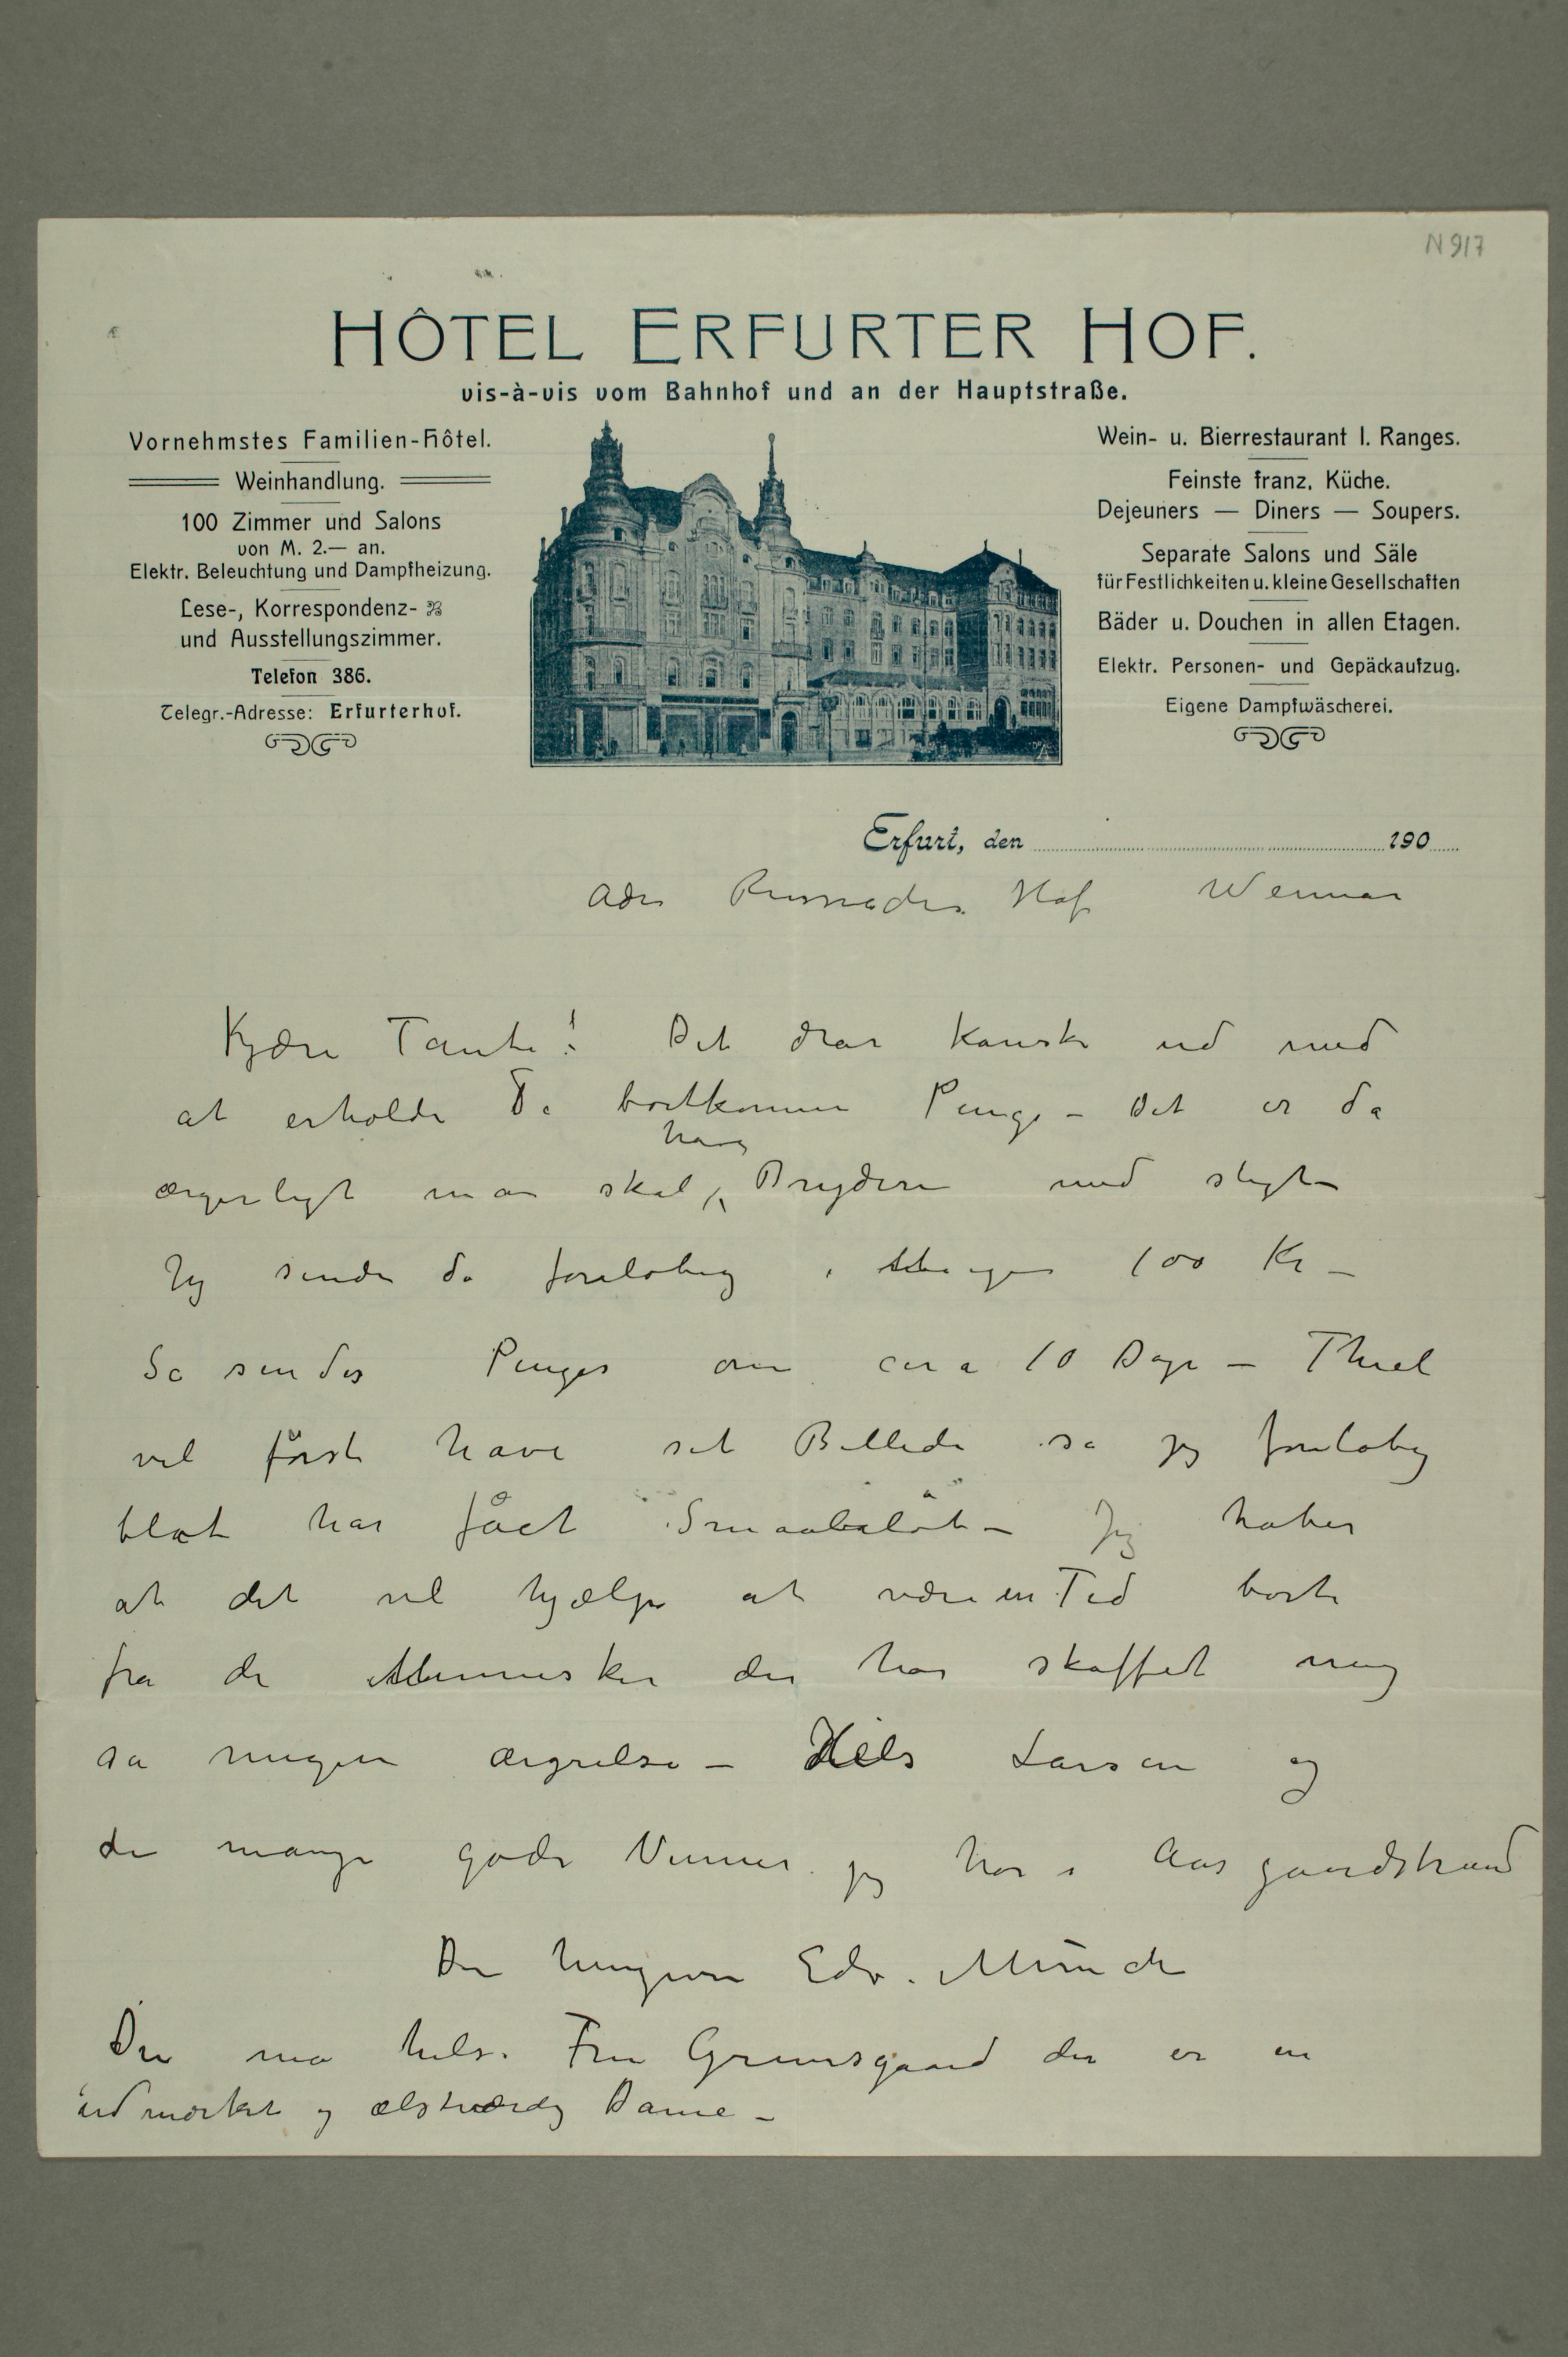 N 917
HÔTEL ERFURTER HOF.
vis-à-vis vom Bahnhof und an der Hauptstraße.
Vornehmstes Familien-Hôtel.
Weinhandlung.
100 Zimmer und Salons
von M. 2.— an.
Elektr. Beleuchtung und Dampfheizung.
Lese-, Korrespondenz-
und Ausstellungszimmer.
Telefon 386.
Telegr.-Adresse: Erfurterhof.
Wein- u. Bierrestaurant I. Ranges.
Feinste franz. Küche.
Dejeuners — Diners — Soupers.
Separate Salons und Säle
für Festlichkeiten u. kleine Gesellschaften
Bäder u. Douchen in allen Etagen.
Elektr. Personen- und Gepäckaufzug.
Eigene Dampfwäscherei.
Erfurt, den 190
Adr Russischer Hof Weimar
Kjære Tante! Det drar kanske ud med
at erholde de bortkomne Penge – Det er da
ærgerligt man skal have Bryderi med sligt –
Jeg sender da foreløbig i Morgen 100 Kr –
Så sendes Penger om cira 10 Dage – Thiel
vil først have set Billedet så jeg foreløbig
blot har fået Smaabeløb – Jeg håber
at det vil hjælpe at være en Tid borte
fra de Mennesker der har skaffet mig
så megen ærgrelse – Hils Larsen og
de mange gode Venner jeg har i Aasgaardstrand
Din hengivne Edv. Munch
Du må hilse Fru Grimsgaard der er en
udmærket og elskværdig Dame –